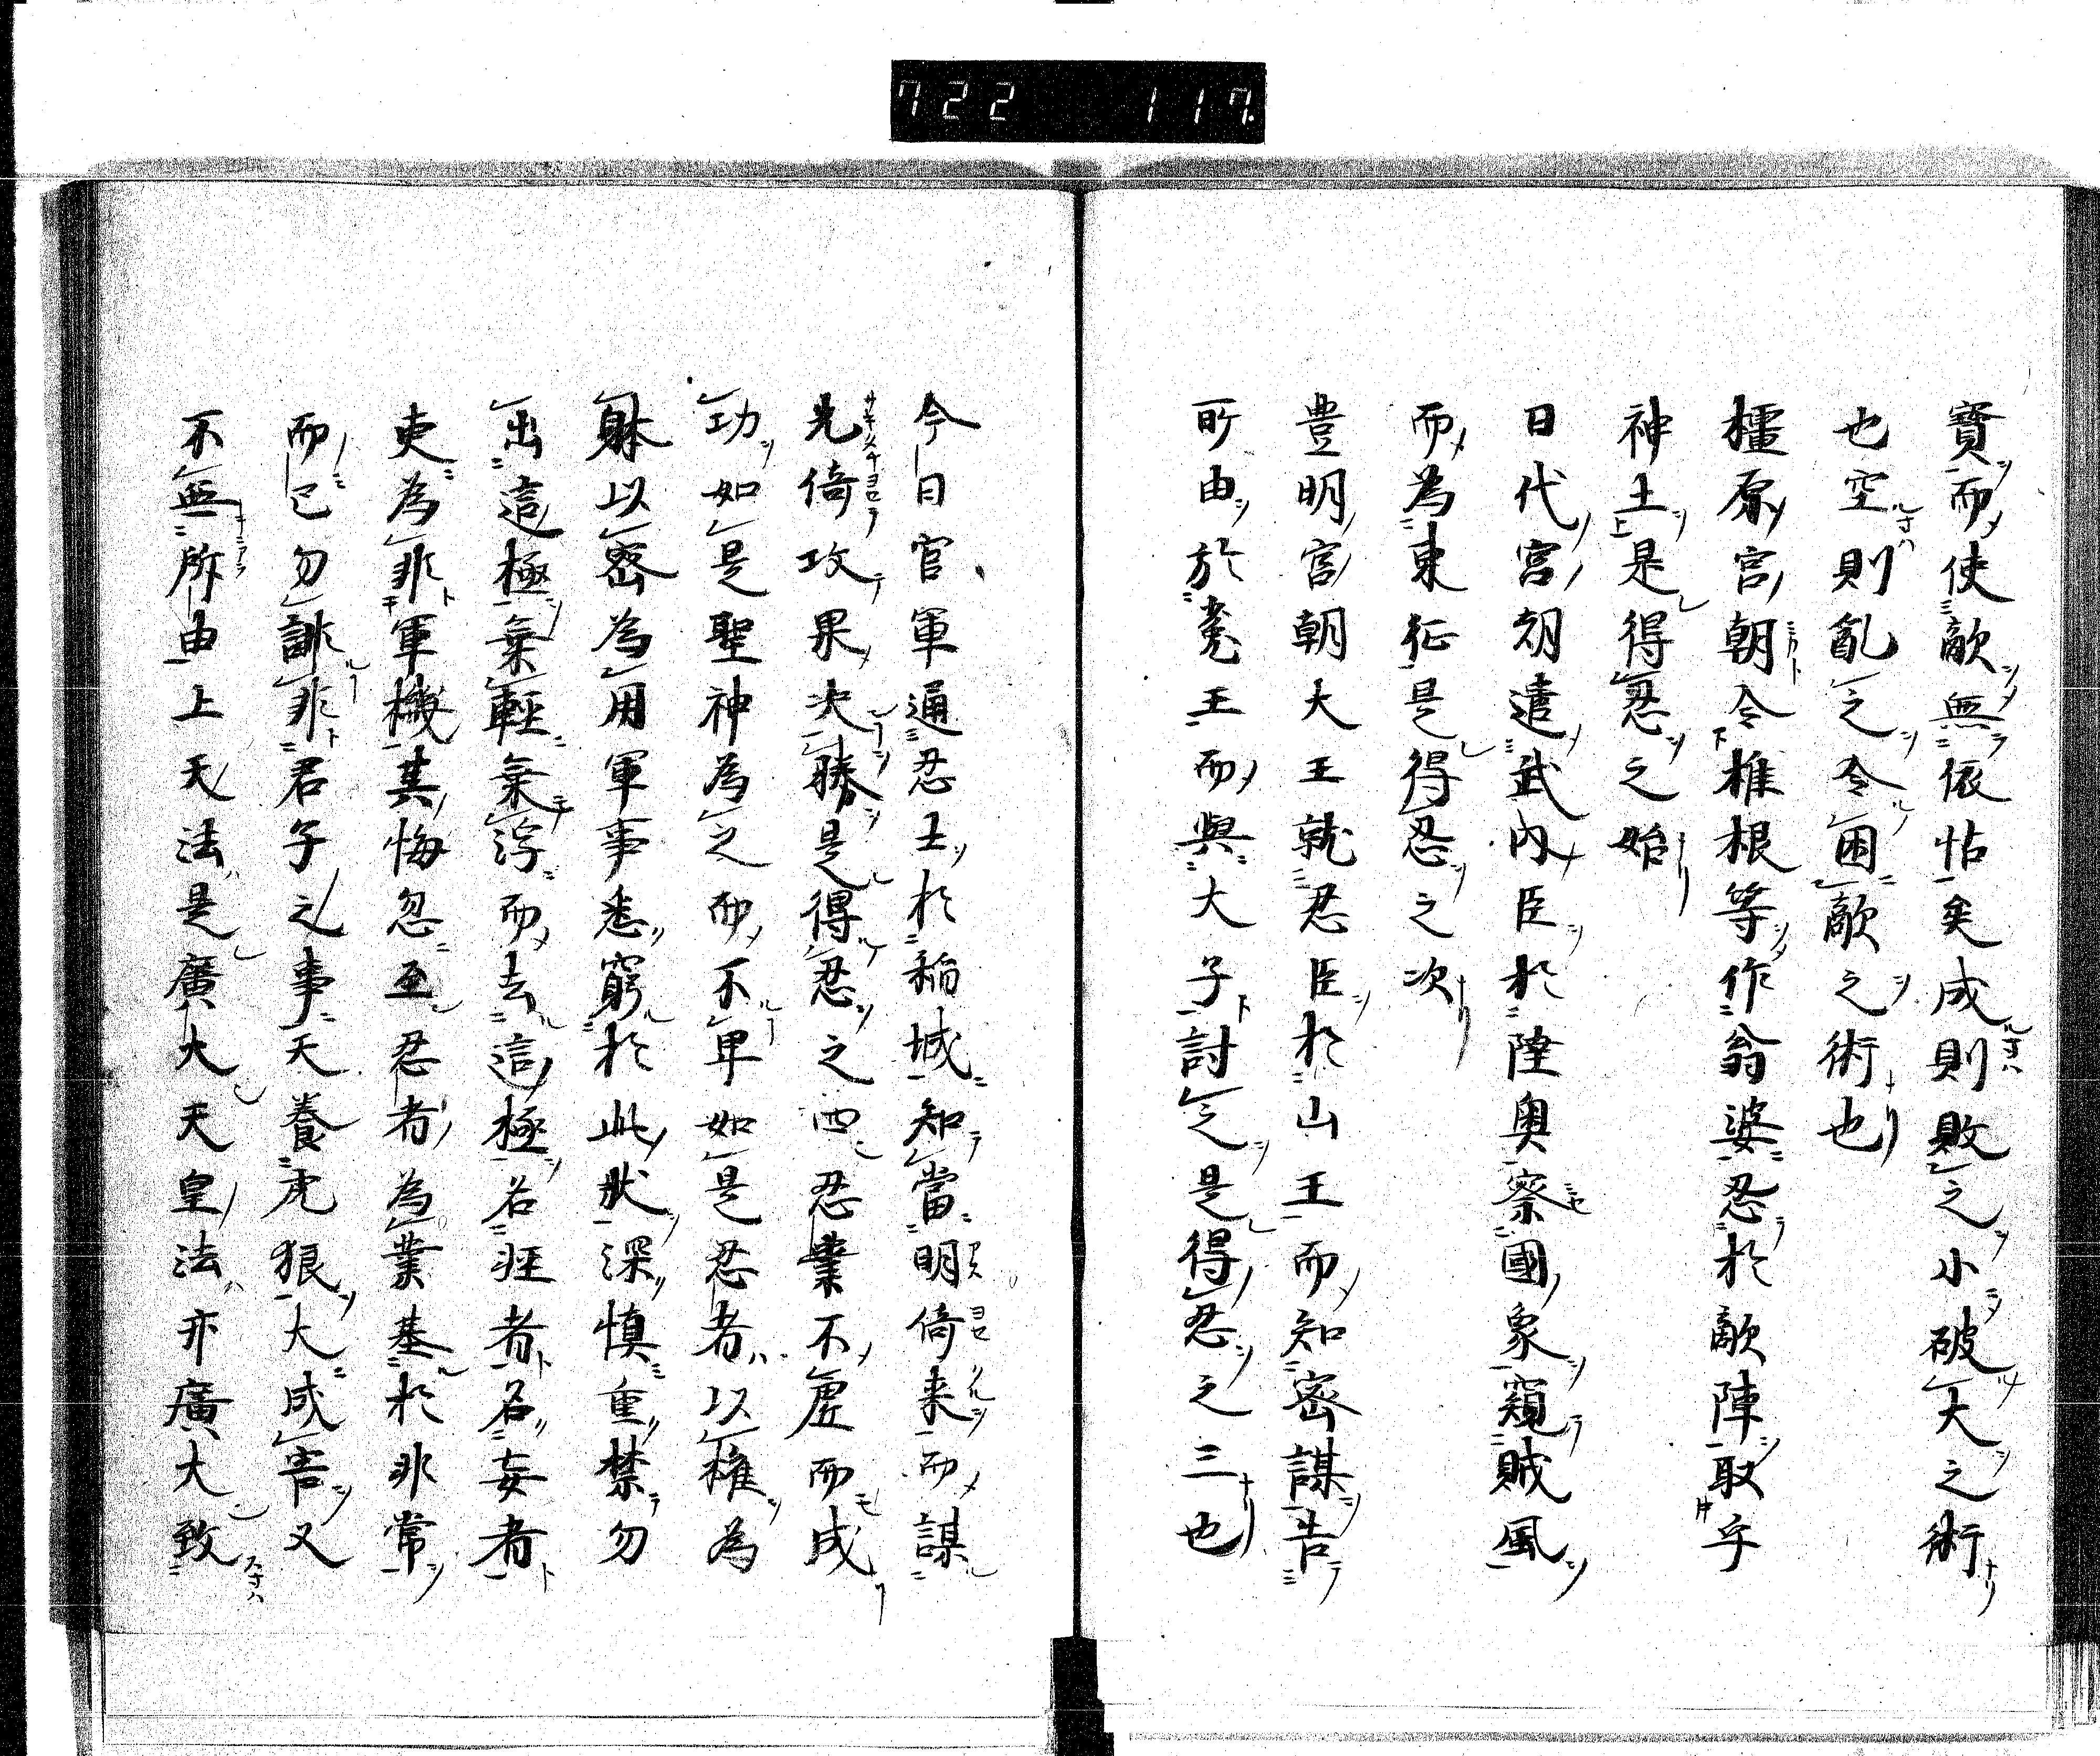 722 117.
寶而使敵無依怙矣成則敗之小破大之術
也空則亂之令困敵之術也
橿原宮朝令椎根等作翁婆忍於敵陣取乎
神土是得忍之始
日代宮朝遣武內臣於陸奧察國象窺賊風
而為東征是得忍之次
豊明宮朝大王就忍臣於山王而知密謀告
所由於菟王而與大子討之是得忍之三也
今日官軍通忍士於稲城知當明倚来而謀
先倚攻果决勝是得忍之四忍業不虚而成
功如是聖神為之而不卑如是忍者以権為
躰以密為用軍事悉窮於此狀深慎重禁勿
出這極棄輕棄浮而去這極名狂者名妄者
吏為非軍機其悔忽至忍者為業基於非常
而已勿誹非君子之事天養虎狼大成吝又
不無所由上天法是廣大天皇法亦廣大致